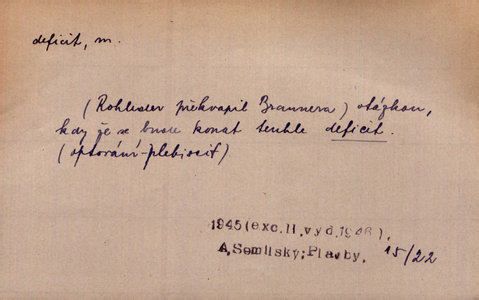 deficit, m.
(Rohleder překvapil Braunera) otázkou,
kdy že se bude konat tenhle deficit.
(optování-plebiscit)
1945 (exc. II. vyd. 1946).
A. Semilský: Plavby. 15/22